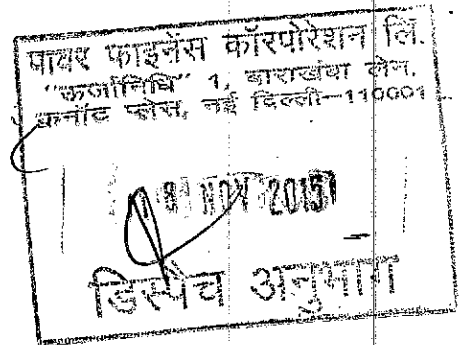 पावर फाइनेंस कॉरपोरेशन लि.
"ऊर्जानिधि" 1, बाराखंबा लेन,
कनॉट प्लेस, नई दिल्ली-110001
NOV 2015
डिस्पैच अनुभाग